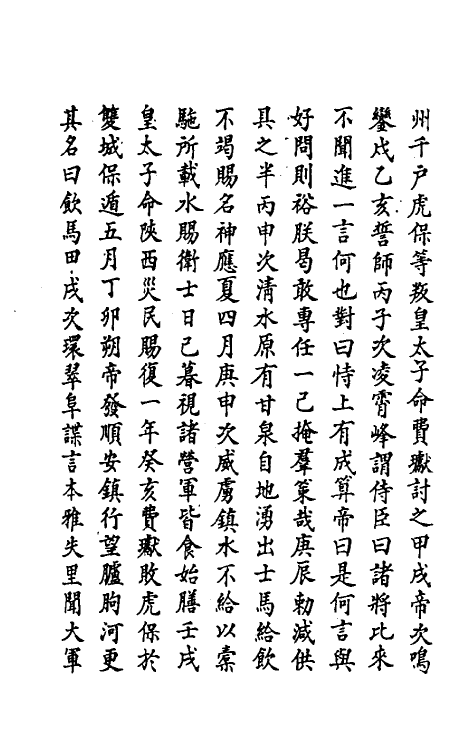 州千户虎保等叛皇太子命費瓛討之甲戌帝次鳴
鑾戍乙亥誓師丙子次凌霄峰謂侍臣曰諸將比來
不聞進一言何也對曰恃上有成算帝曰是何言與
好問則裕朕曷敢專任一己掩羣策哉庚辰勅減供
具之半丙申次清水原有甘泉自地湧出士馬給飲
不竭賜名神應夏四月庚申次威虜鎮水不給以橐
駞所載水賜衛士日已暮視諸營軍皆食始膳壬戌
皇太子命陜西災民賜復一年癸亥費瓛敗虎保於
雙城保遁五月丁卯朔帝發順安鎮行望臚朐河更
其名曰飲馬田戌次環翠阜諜言本雅失里聞大軍